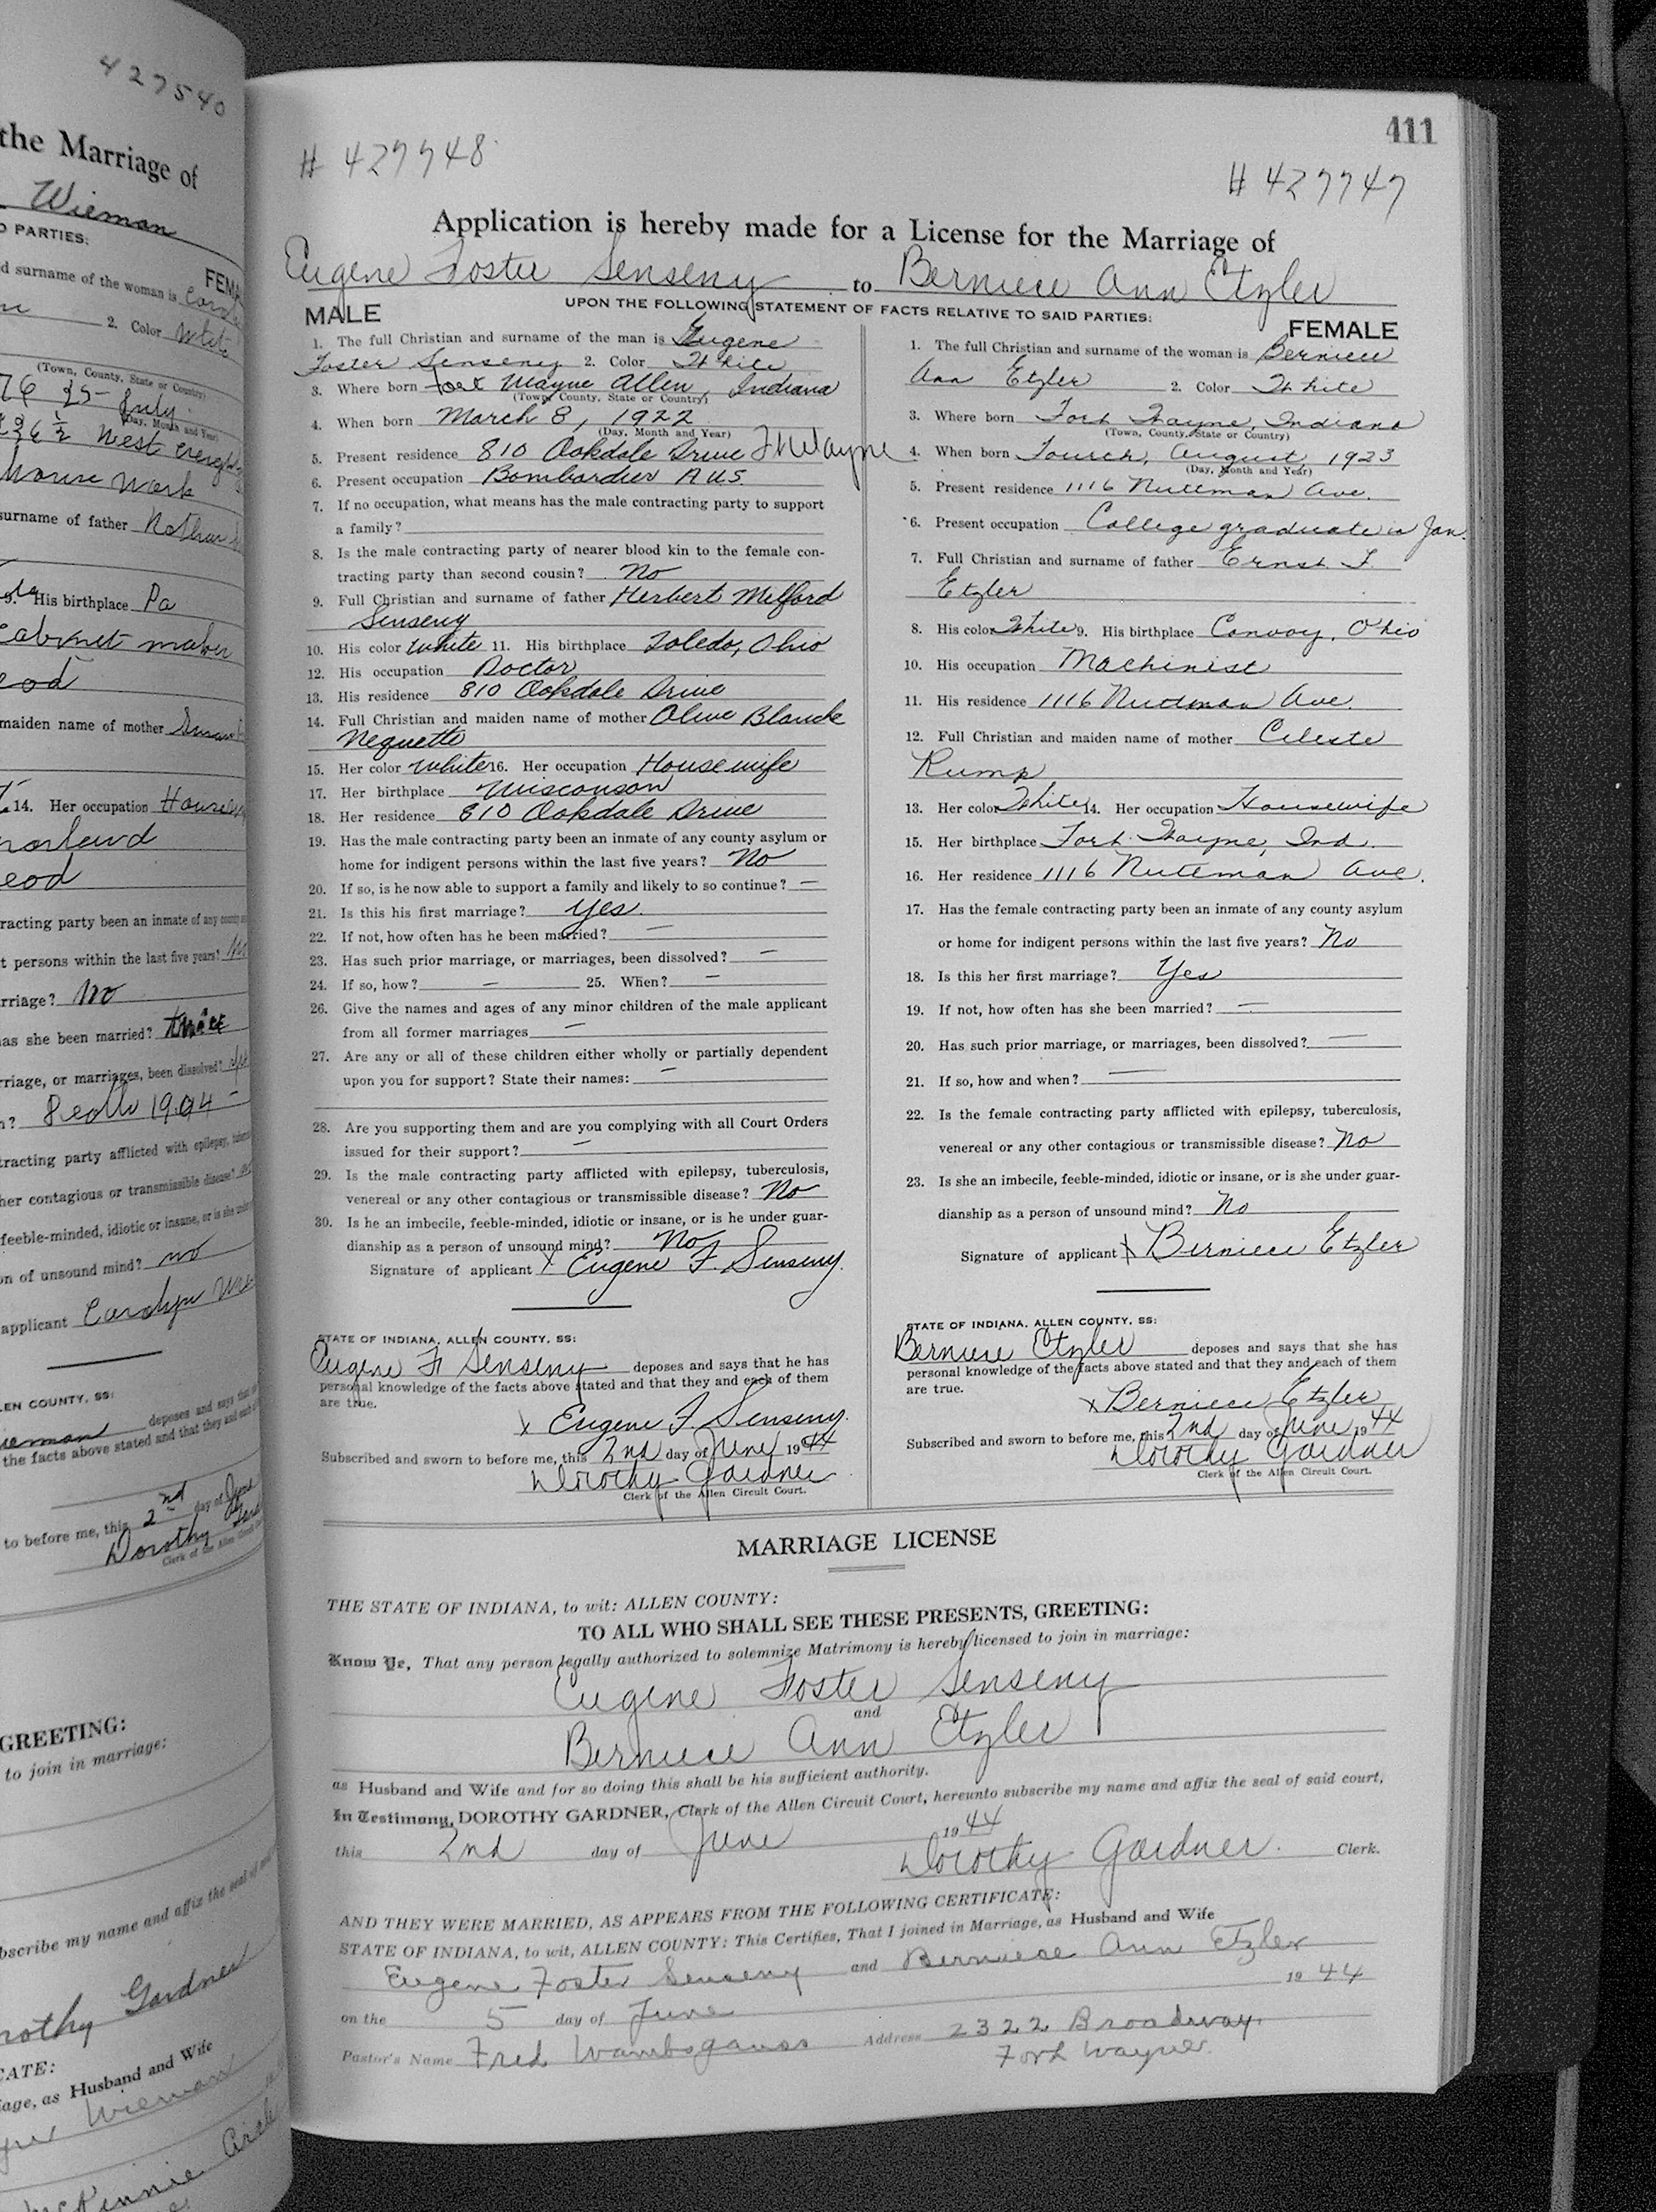 427540
the Marriage of
Wieman
PARTIES:
FEMA
d surname of the woman is
2. Color White
(Town, County, State or Country)
July
(Day, Month and Year)
West
House Work
surname of father
His birthplace Pa
Cabinet maker
maiden name of mother
14. Her occupation
racting party been an inmate of any county
t persons within the last five years?
rriage? No
as she been married?
rriage, or marriages, been dissolved?
tracting party afflicted with epilepsy,
her contagious or transmissible disease?
feeble-minded, idiotic or insane, or is she under
on of unsound mind? no
applicant Carolyn
EN COUNTY, SS:
deposes and says that
the facts above stated and that they and each of
to before me, this 2nd day of June
Dorothy
Clerk of the Allen Circuit
GREETING:
to join in marriage:
bscribe my name and affix the seal of
Gardner
CATE:
iage, as Husband and Wife
Wieman
411
# 427748
# 427747
Application is hereby made for a License for the Marriage of
Eugene Foster Senseny to Berniece Ann Etzler
UPON THE FOLLOWING STATEMENT OF FACTS RELATIVE TO SAID PARTIES:
MALE
1. The full Christian and surname of the man is Eugene
Foster Senseny 2. Color White
3. Where born Fort Wayne Allen, Indiana
(Town, County, State or Country)
4. When born March 8, 1922
(Day, Month and Year)
5. Present residence 810 Oakdale Drive Ft Wayne
6. Present occupation Bombardier A.U.S.
7. If no occupation, what means has the male contracting party to support
a family?
8. Is the male contracting party of nearer blood kin to the female con-
tracting party than second cousin? No
9. Full Christian and surname of father Herbert Melford
Senseny
10. His color White 11. His birthplace Toledo, Ohio
12. His occupation Doctor
13. His residence 810 Oakdale Drive
14. Full Christian and maiden name of mother Olive Blanche
Nequette
15. Her color White 16. Her occupation Housewife
17. Her birthplace Wisconson
18. Her residence 810 Oakdale Drive
19. Has the male contracting party been an inmate of any county asylum or
home for indigent persons within the last five years? No
20. If so, is he now able to support a family and likely to so continue? —
21. Is this his first marriage? Yes.
22. If not, how often has he been married? —
23. Has such prior marriage, or marriages, been dissolved? —
24. If so, how? — 25. When? —
26. Give the names and ages of any minor children of the male applicant
from all former marriages —
27. Are any or all of these children either wholly or partially dependent
upon you for support? State their names: —
28. Are you supporting them and are you complying with all Court Orders
issued for their support? —
29. Is the male contracting party afflicted with epilepsy, tuberculosis,
venereal or any other contagious or transmissible disease? No
30. Is he an imbecile, feeble-minded, idiotic or insane, or is he under guar-
dianship as a person of unsound mind? No
Signature of applicant x Eugene F. Senseny.
STATE OF INDIANA, ALLEN COUNTY, SS:
Eugene F. Senseny deposes and says that he has
personal knowledge of the facts above stated and that they and each of them
are true.
x Eugene F. Senseny.
Subscribed and sworn to before me, this 2nd day of June 1944
Dorothy Gardner
Clerk of the Allen Circuit Court.
FEMALE
1. The full Christian and surname of the woman is Berniece
Ann Etzler 2. Color White
3. Where born Fort Wayne, Indiana
(Town, County, State or Country)
4. When born Fourth, August, 1923
(Day, Month and Year)
5. Present residence 1116 Nuttman Ave.
6. Present occupation College graduate in Jan.
7. Full Christian and surname of father Ernst F.
Etzler
8. His color White 9. His birthplace Convoy, Ohio
10. His occupation Machinist
11. His residence 1116 Nuttman Ave.
12. Full Christian and maiden name of mother Celeste
Rump
13. Her color White 14. Her occupation Housewife
15. Her birthplace Fort Wayne, Ind.
16. Her residence 1116 Nuttman Ave.
17. Has the female contracting party been an inmate of any county asylum
or home for indigent persons within the last five years? No
18. Is this her first marriage? Yes
19. If not, how often has she been married? —
20. Has such prior marriage, or marriages, been dissolved? —
21. If so, how and when? —
22. Is the female contracting party afflicted with epilepsy, tuberculosis,
venereal or any other contagious or transmissible disease? No
23. Is she an imbecile, feeble-minded, idiotic or insane, or is she under guar-
dianship as a person of unsound mind? No
Signature of applicant x Berniece Etzler
STATE OF INDIANA, ALLEN COUNTY, SS:
Berniece Etzler deposes and says that she has
personal knowledge of the facts above stated and that they and each of them
are true.
x Berniece Etzler
Subscribed and sworn to before me, this 2nd day of June 1944
Dorothy Gardner
Clerk of the Allen Circuit Court.
MARRIAGE LICENSE
THE STATE OF INDIANA, to wit: ALLEN COUNTY:
TO ALL WHO SHALL SEE THESE PRESENTS, GREETING:
Know Ye, That any person legally authorized to solemnize Matrimony is hereby licensed to join in marriage:
Eugene Foster Senseny
and
Berniece Ann Etzler
as Husband and Wife and for so doing this shall be his sufficient authority.
In Testimony, DOROTHY GARDNER, Clerk of the Allen Circuit Court, hereunto subscribe my name and affix the seal of said court,
this 2nd day of June 1944
Dorothy Gardner. Clerk.
AND THEY WERE MARRIED, AS APPEARS FROM THE FOLLOWING CERTIFICATE:
STATE OF INDIANA, to wit, ALLEN COUNTY: This Certifies, That I joined in Marriage, as Husband and Wife
Eugene Foster Senseny and Berniece Ann Etzler
on the 5 day of June 1944
Pastor's Name Fred Wambsganss Address 2322 Broadway.
Fort Wayne.